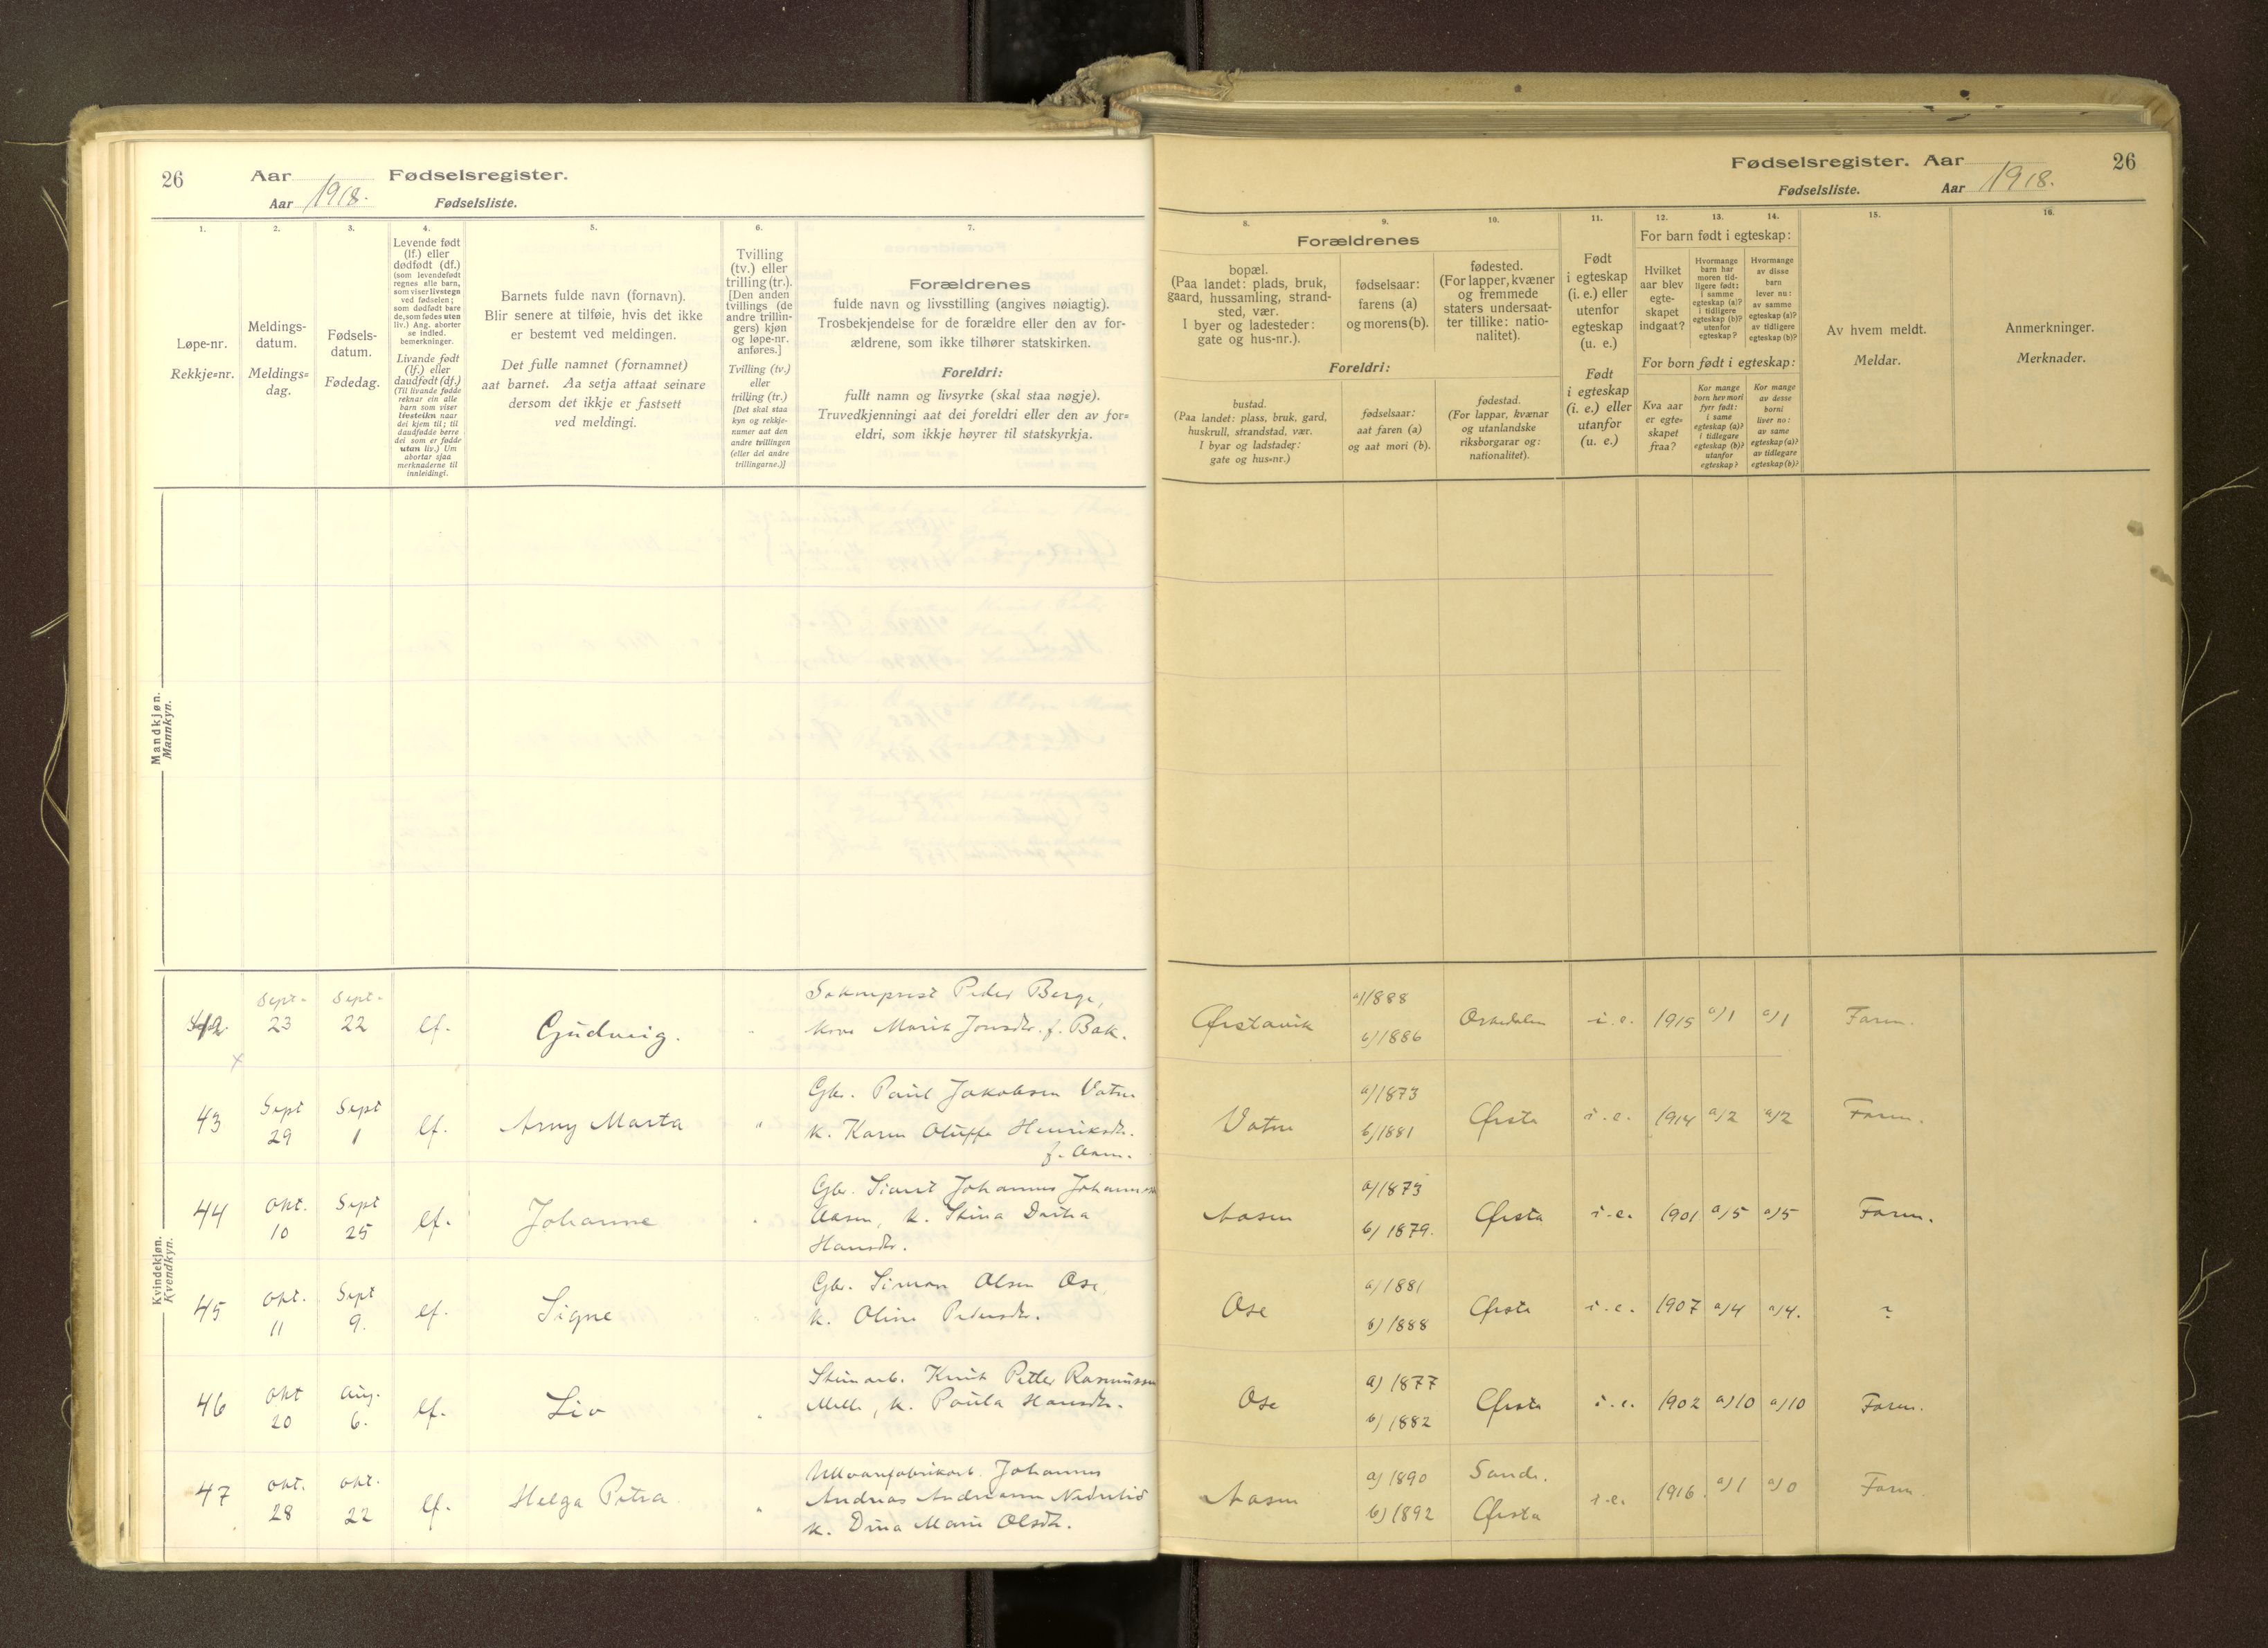 26
Aar 1918. Fødselsregister.
Aar Fødselsliste.
1.
Løpe-nr.
Rekkje=nr.
2.
Meldings-
datum.
Meldings=
dag.
3.
Fødsels-
datum.
Fødedag.
4.
Levende født
(lf.) eller
dødfødt (df.)
(som levendefødt
regnes alle barn,
som viser livstegn
ved fødselen;
som dødfødt bare
de, som fødes uten
liv.) Ang. aborter
se indled.
bemerkninger.
Livande født
(lf.) eller
daudfødt (df.)
(Til livande fødde
reknar ein alle
barn som viser
livsteikn naar
dei kjem til; til
daudfødde berre
dei som er fødde
utan liv.) Um
abortar sjaa
merknaderne til
innleidingi.
5.
Barnets fulde navn (fornavn).
Blir senere at tilføie, hvis det ikke
er bestemt ved meldingen.
Det fulle namnet (fornamnet)
aat barnet. Aa setja attaat seinare
dersom det ikkje er fastsett
ved meldingi.
6.
Tvilling
(tv.) eller
trilling (tr.).
[Den anden
tvillings (de
andre trillin-
gers) kjøn
og løpe-nr.
anføres.]
Tvilling (tv.)
eller
trilling (tr.)
[Det skal staa
kyn og rekkje-
numer aat den
andre tvillingen
(eller dei andre
trillingarne.)]
7.
Forældrenes
fulde navn og livsstilling (angives nøiagtig).
Trosbekjendelse for de forældre eller den av for-
ældrene, som ikke tilhører statskirken.
Foreldri:
fullt namn og livsyrke (skal staa nøgje).
Truvedkjenningi aat dei foreldri eller den av for=
eldri, som ikkje høyrer til statskyrkja.
Mandkjøn.
Mannkyn.
Kvindekjøn.
Kvendkyn.
42 Sept. 23 Sept. 22 lf. Gudveig. "
Sokneprest Peder Berge,
kone Marit Jonsdtr. f. Bak.
43 Sept 29 Sept 1 lf. Arny Marta "
Gbr. Paul Jakobsen Vatne
k. Karen Oluffa Henriksdtr.
f. Aam.
44 Okt. 10 Sept 25 lf. Johanne "
Gbr. Sivert Johannes Johannesen
Aasen, k. Stina Dortea
Hansdtr.
45 Okt. 11 Sept 9. lf. Signe "
Gbr. Simon Olsen Ose,
k. Oline Pedersdtr.
46 Okt 20 Aug. 6. lf. Liv "
Steinarb. Knut Petter Rasmussen
Melle, k. Paula Hansdtr.
47 Okt. 28 Okt. 22 lf. Helga Petra "
Ullvarefabrikarb. Johannes
Andreas Andreassen Nedrelid
k. Dina Marie Olsdtr.
Fødselsregister. Aar 1918. 26
Fødselsliste. Aar
8.
Forældrenes
bopæl.
(Paa landet: plads, bruk,
gaard, hussamling, strand-
sted, vær.
I byer og ladesteder:
gate og hus-nr.).
Foreldri:
bustad.
(Paa landet: plass, bruk, gard,
huskrull, strandstad, vær.
I byar og ladstader:
gate og hus=nr.)
9.
fødselsaar:
farens (a)
og morens (b).
fødselsaar:
aat faren (a)
og aat mori (b).
10.
fødested.
(For lapper, kvæner
og fremmede
staters undersaat-
ter tillike: natio-
nalitet).
fødestad.
(For lappar, kvænar
og utanlandske
riksborgarar og:
nationalitet).
11.
Født
i egteskap
(i. e.) eller
utenfor
egteskap
(u. e.)
Født
i egteskap
(i. e.) eller
utanfor
(u. e.)
12.
13.
14.
For barn født i egteskap:
Hvilket
aar blev
egte-
skapet
indgaat?
Hvormange
barn har
moren tid-
ligere født:
i samme
egteskap (a)?
i tidligere
egteskap (b)?
utenfor
egteskap?
Hvormange
av disse
barn
lever nu:
av samme
egteskap (a)?
av tidligere
egteskap (b)?
For born født i egteskap:
Kva aar
er egte=
skapet
fraa?
Kor mange
born hev mori
fyrr født:
i same
egteskap (a)?
i tidlegare
egteskap (b)?
utanfor
egteskap?
Kor mange
av desse
borni
liver no:
av same
egteskap (a)?
av tidlegare
egteskap (b)?
15.
Av hvem meldt.
Meldar.
16.
Anmerkninger.
Merknader.
Ørstavik a) 1888 b) 1886 Orkedalen i. e. 1915 a/1 a/1 Faren.
Vatne a) 1873 b) 1881 Ørsta i. e. 1914 a/2 a/2 Faren.
Aasen a) 1873 b) 1879. Ørsta i. e. 1901 a/5 a/5 Faren.
Ose a) 1881 b) 1888 Ørsta i. e. 1907 a/4 a/4. ?
Ose a) 1877 b) 1882 Ørsta i. e. 1902 a/10 a/10 Faren.
Aasen a) 1890 b) 1892 Sande. Ørsta i. e. 1916. a/1 a/0 Faren.